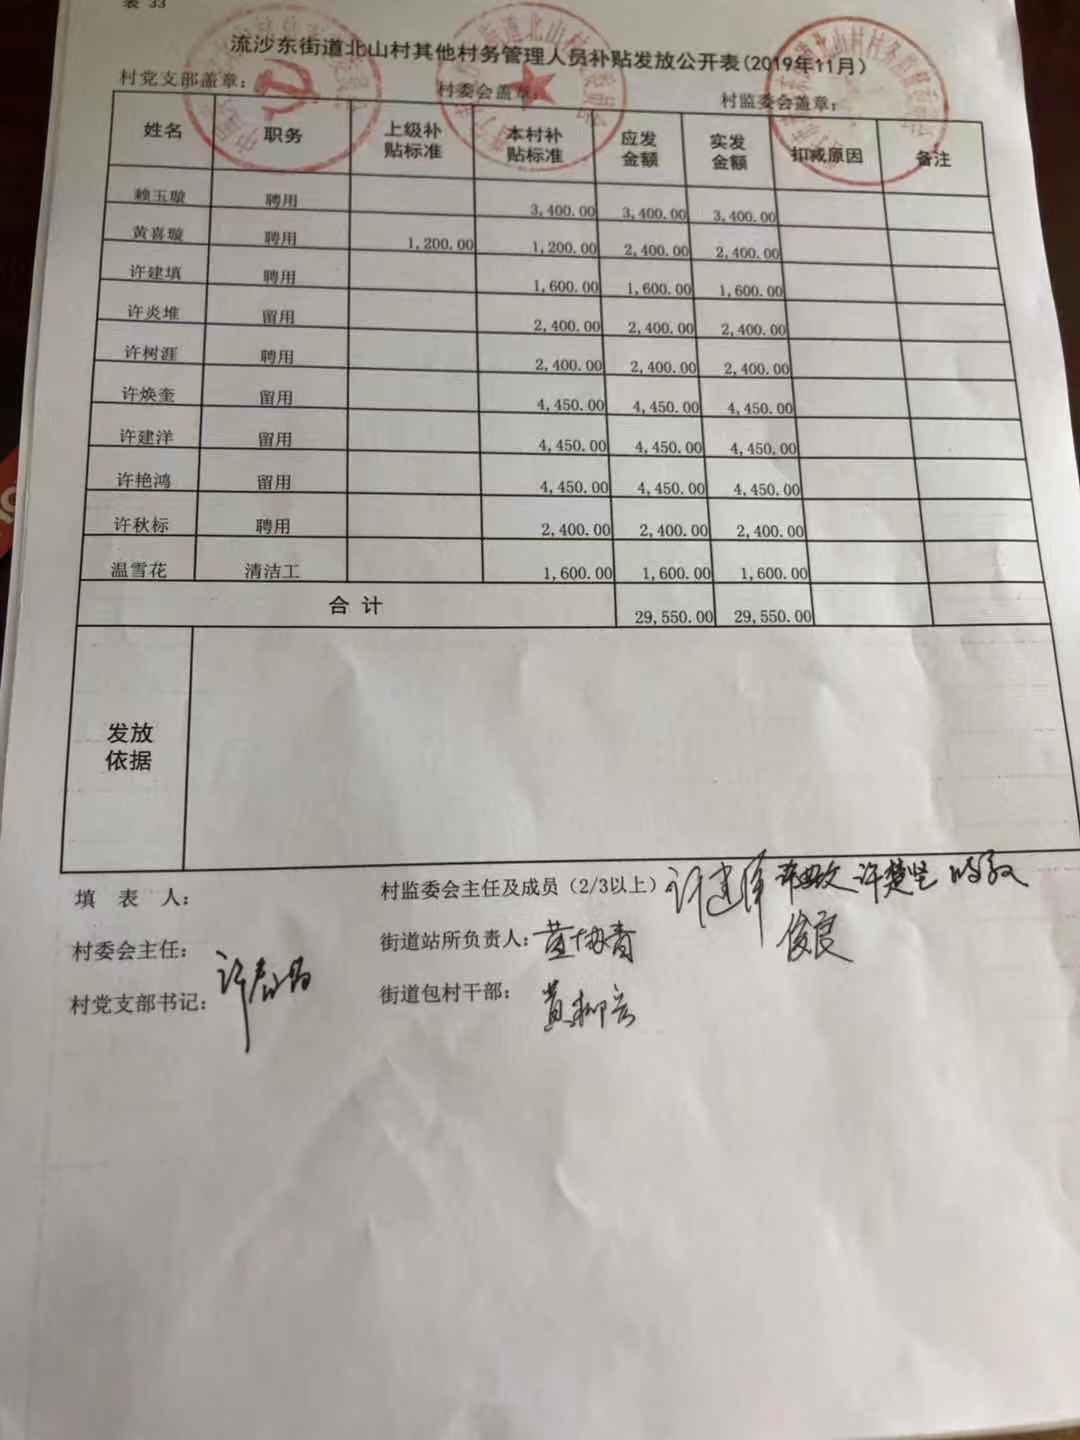 表 33
流沙东街道北山村其他村务管理人员补贴发放公开表(2019年11月)
村党支部盖章: 村委会盖章: 村监委会盖章:
姓名 职务 上级补贴标准 本村补贴标准 应发金额 实发金额 扣减原因 备注
赖玉璇 聘用 3,400.00 3,400.00 3,400.00
黄喜璇 聘用 1,200.00 1,200.00 2,400.00 2,400.00
许建填 聘用 1,600.00 1,600.00 1,600.00
许炎堆 留用 2,400.00 2,400.00 2,400.00
许树涯 聘用 2,400.00 2,400.00 2,400.00
许焕奎 留用 4,450.00 4,450.00 4,450.00
许建洋 留用 4,450.00 4,450.00 4,450.00
许艳鸿 留用 4,450.00 4,450.00 4,450.00
许秋标 聘用 2,400.00 2,400.00 2,400.00
温雪花 清洁工 1,600.00 1,600.00 1,600.00
合 计 29,550.00 29,550.00
发放
依据
填 表 人: 村监委会主任及成员(2/3以上) 许楚坚
俊良
村委会主任: 街道站所负责人:
村党支部书记: 街道包村干部: